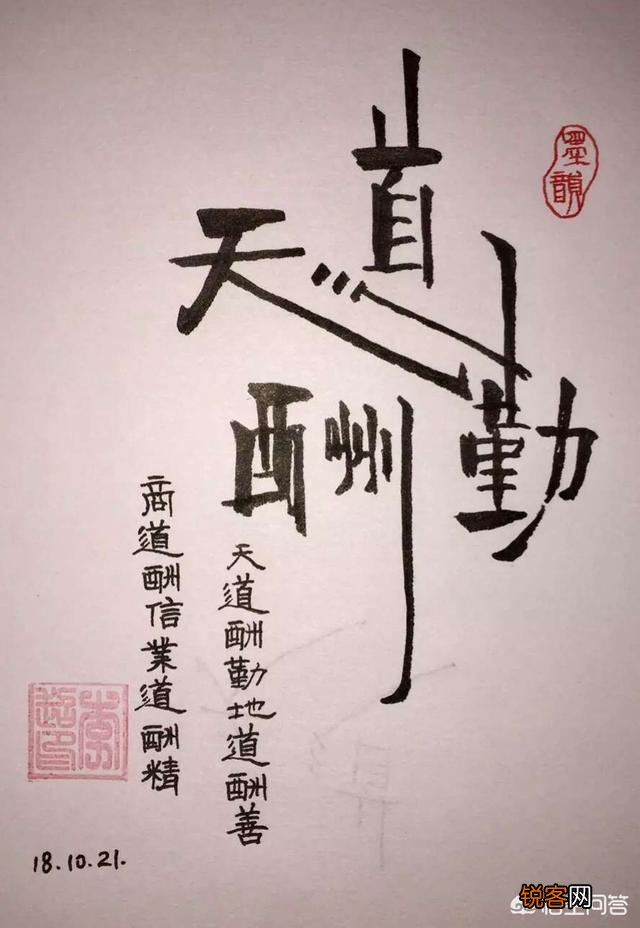 天道酬勤
墨韻
天道酬勤地道酬善
商道酬信業道酬精
18.10.21.
锐客网
悟空问答